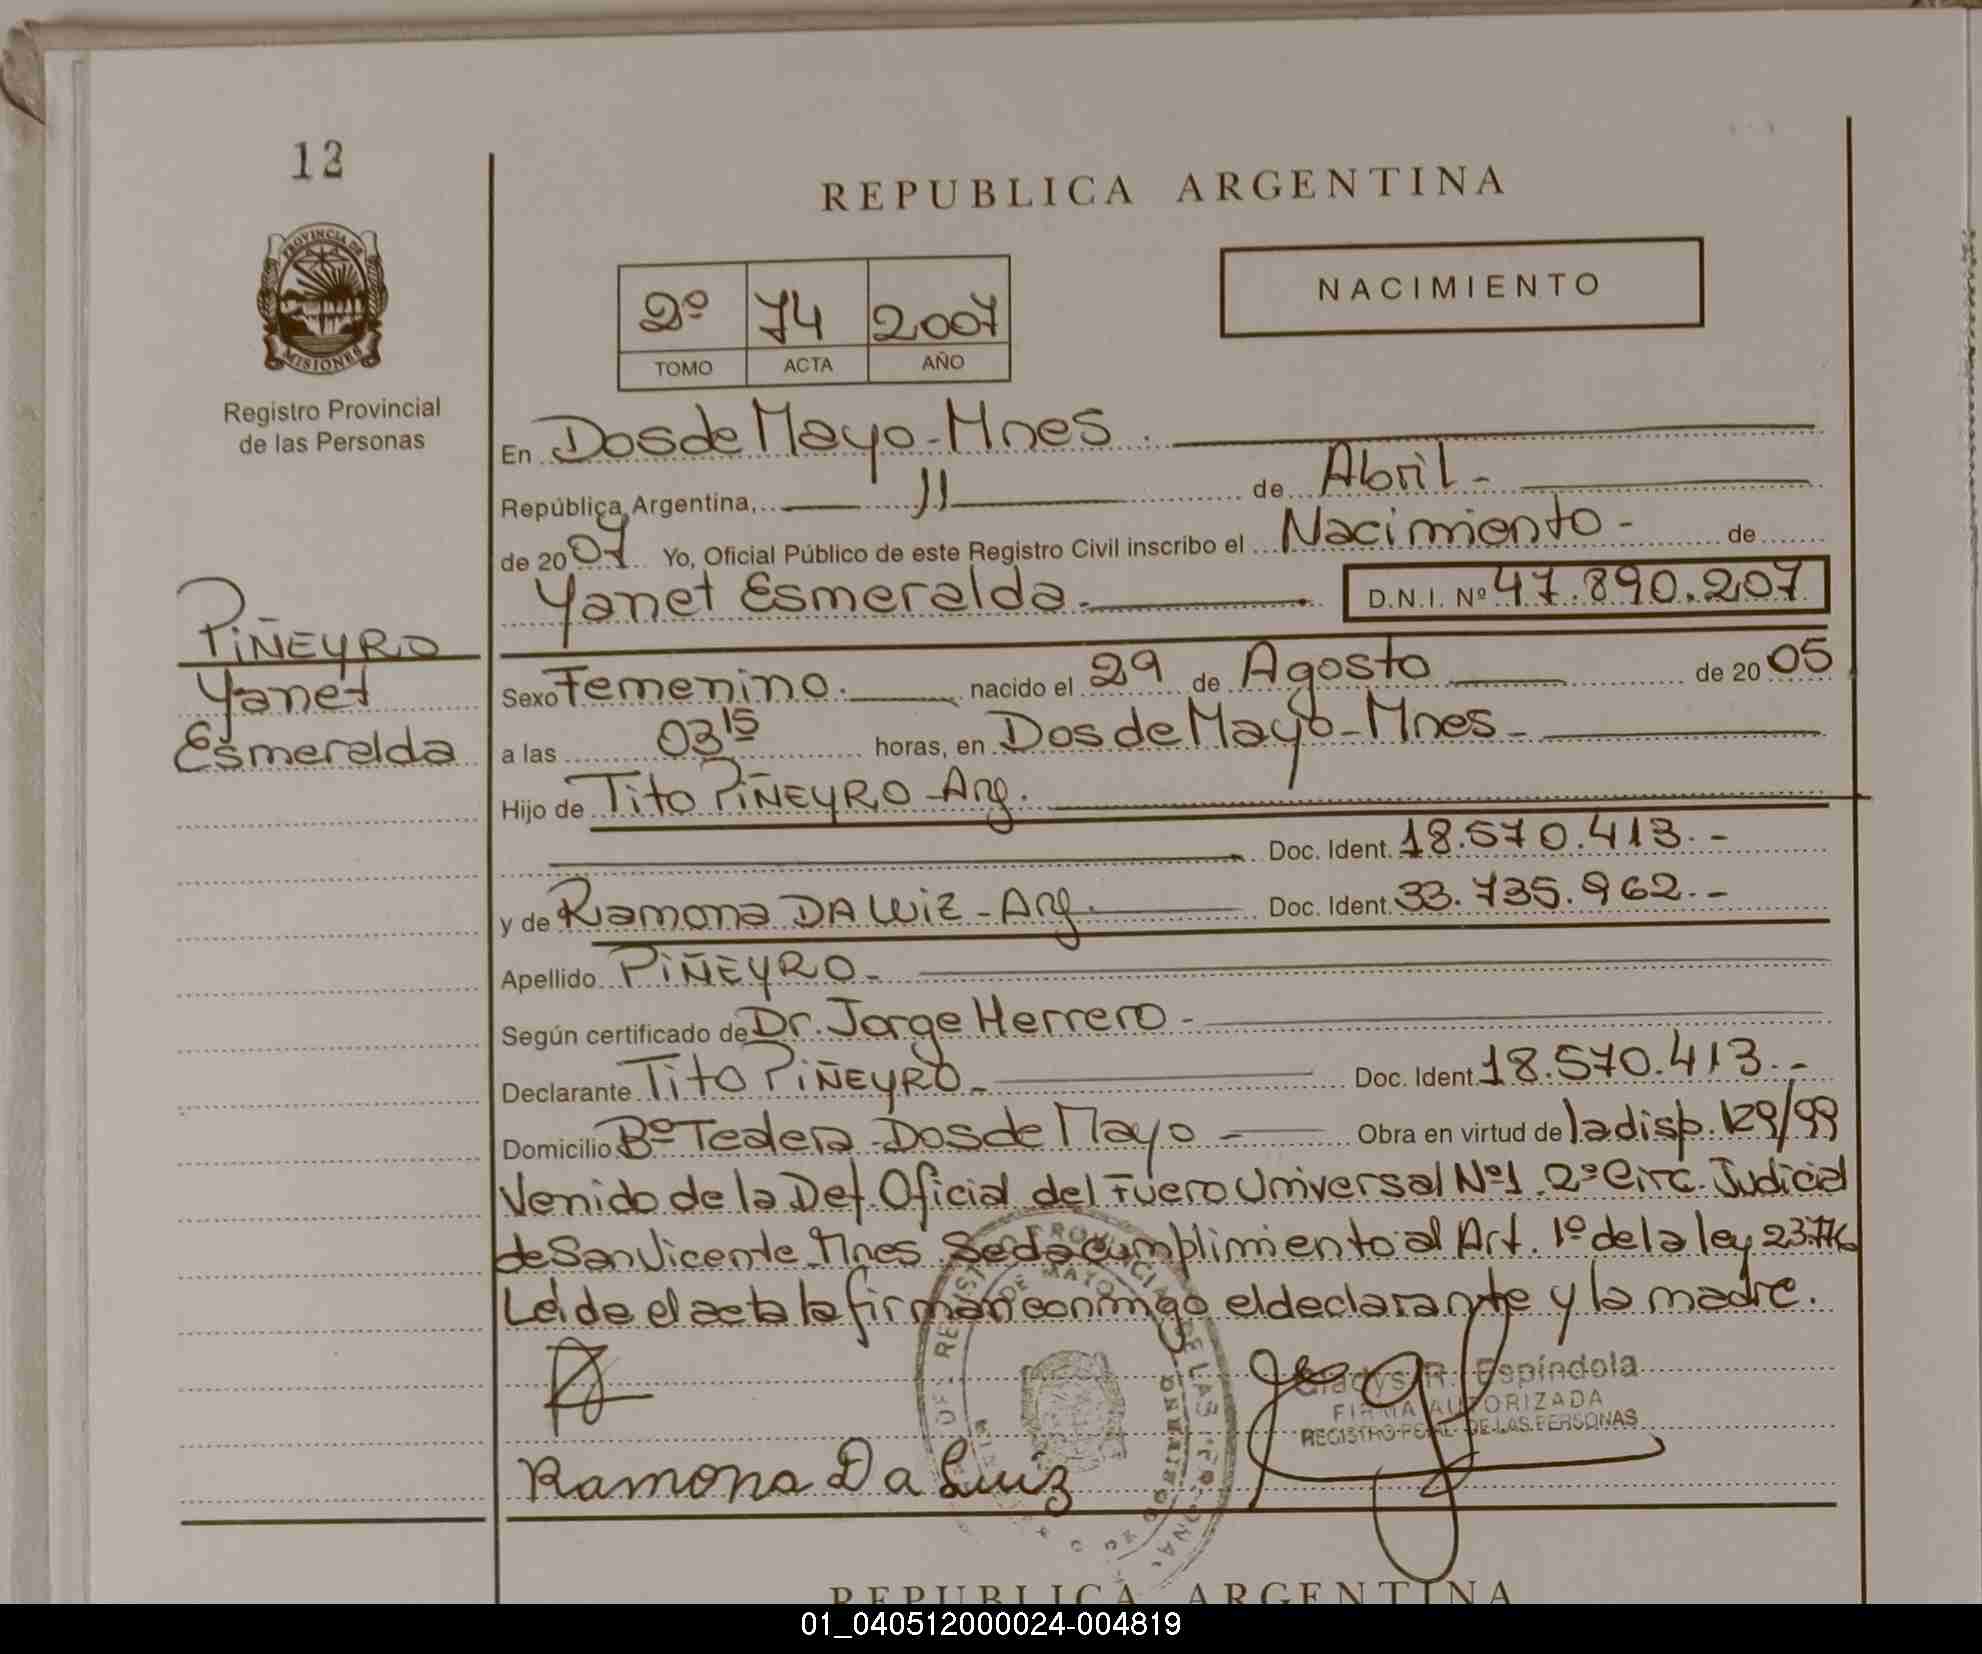 12
PROVINCIA DE
MISIONES
Registro Provincial
de las Personas
REPUBLICA ARGENTINA
2º 74 2007
TOMO ACTA AÑO
NACIMIENTO
En Dos de Mayo - Mnes
República Argentina, 11 de Abril -
de 2007 Yo, Oficial Público de este Registro Civil inscribo el Nacimiento - de
Yanet Esmeralda. D.N.I. Nº 47.890.207
PIÑEYRO
Yanet
Esmeralda
Sexo Femenino. nacido el 29 de Agosto de 2005
a las 03 15 horas, en Dos de Mayo - Mnes -
Hijo de Tito PIÑEYRO - Arg.
Doc. Ident. 18.570.413.-
y de Ramona DA LUIZ - Arg. Doc. Ident. 33.735.962.-
Apellido PIÑEYRO -
Según certificado de Dr. Jorge Herrero -
Declarante Tito PIÑEYRO - Doc. Ident. 18.570.413.-
Domicilio Bº Tealera - Dos de Mayo - Obra en virtud de la disp. 129/99
Venido de la Def. Oficial del Fuero Universal Nº1. 2º Circ. Judicial
de San Vicente - Mnes. Se da cumplimiento al Art. 1º de la ley 23.776
Leída el acta la firman conmigo el declarante y la madre.
Gladys R. Espíndola
FIRMA AUTORIZADA
REGISTRO PCIAL. DE LAS PERSONAS
Ramona Da Luiz
REPUBLICA ARGENTINA
01_040512000024-004819